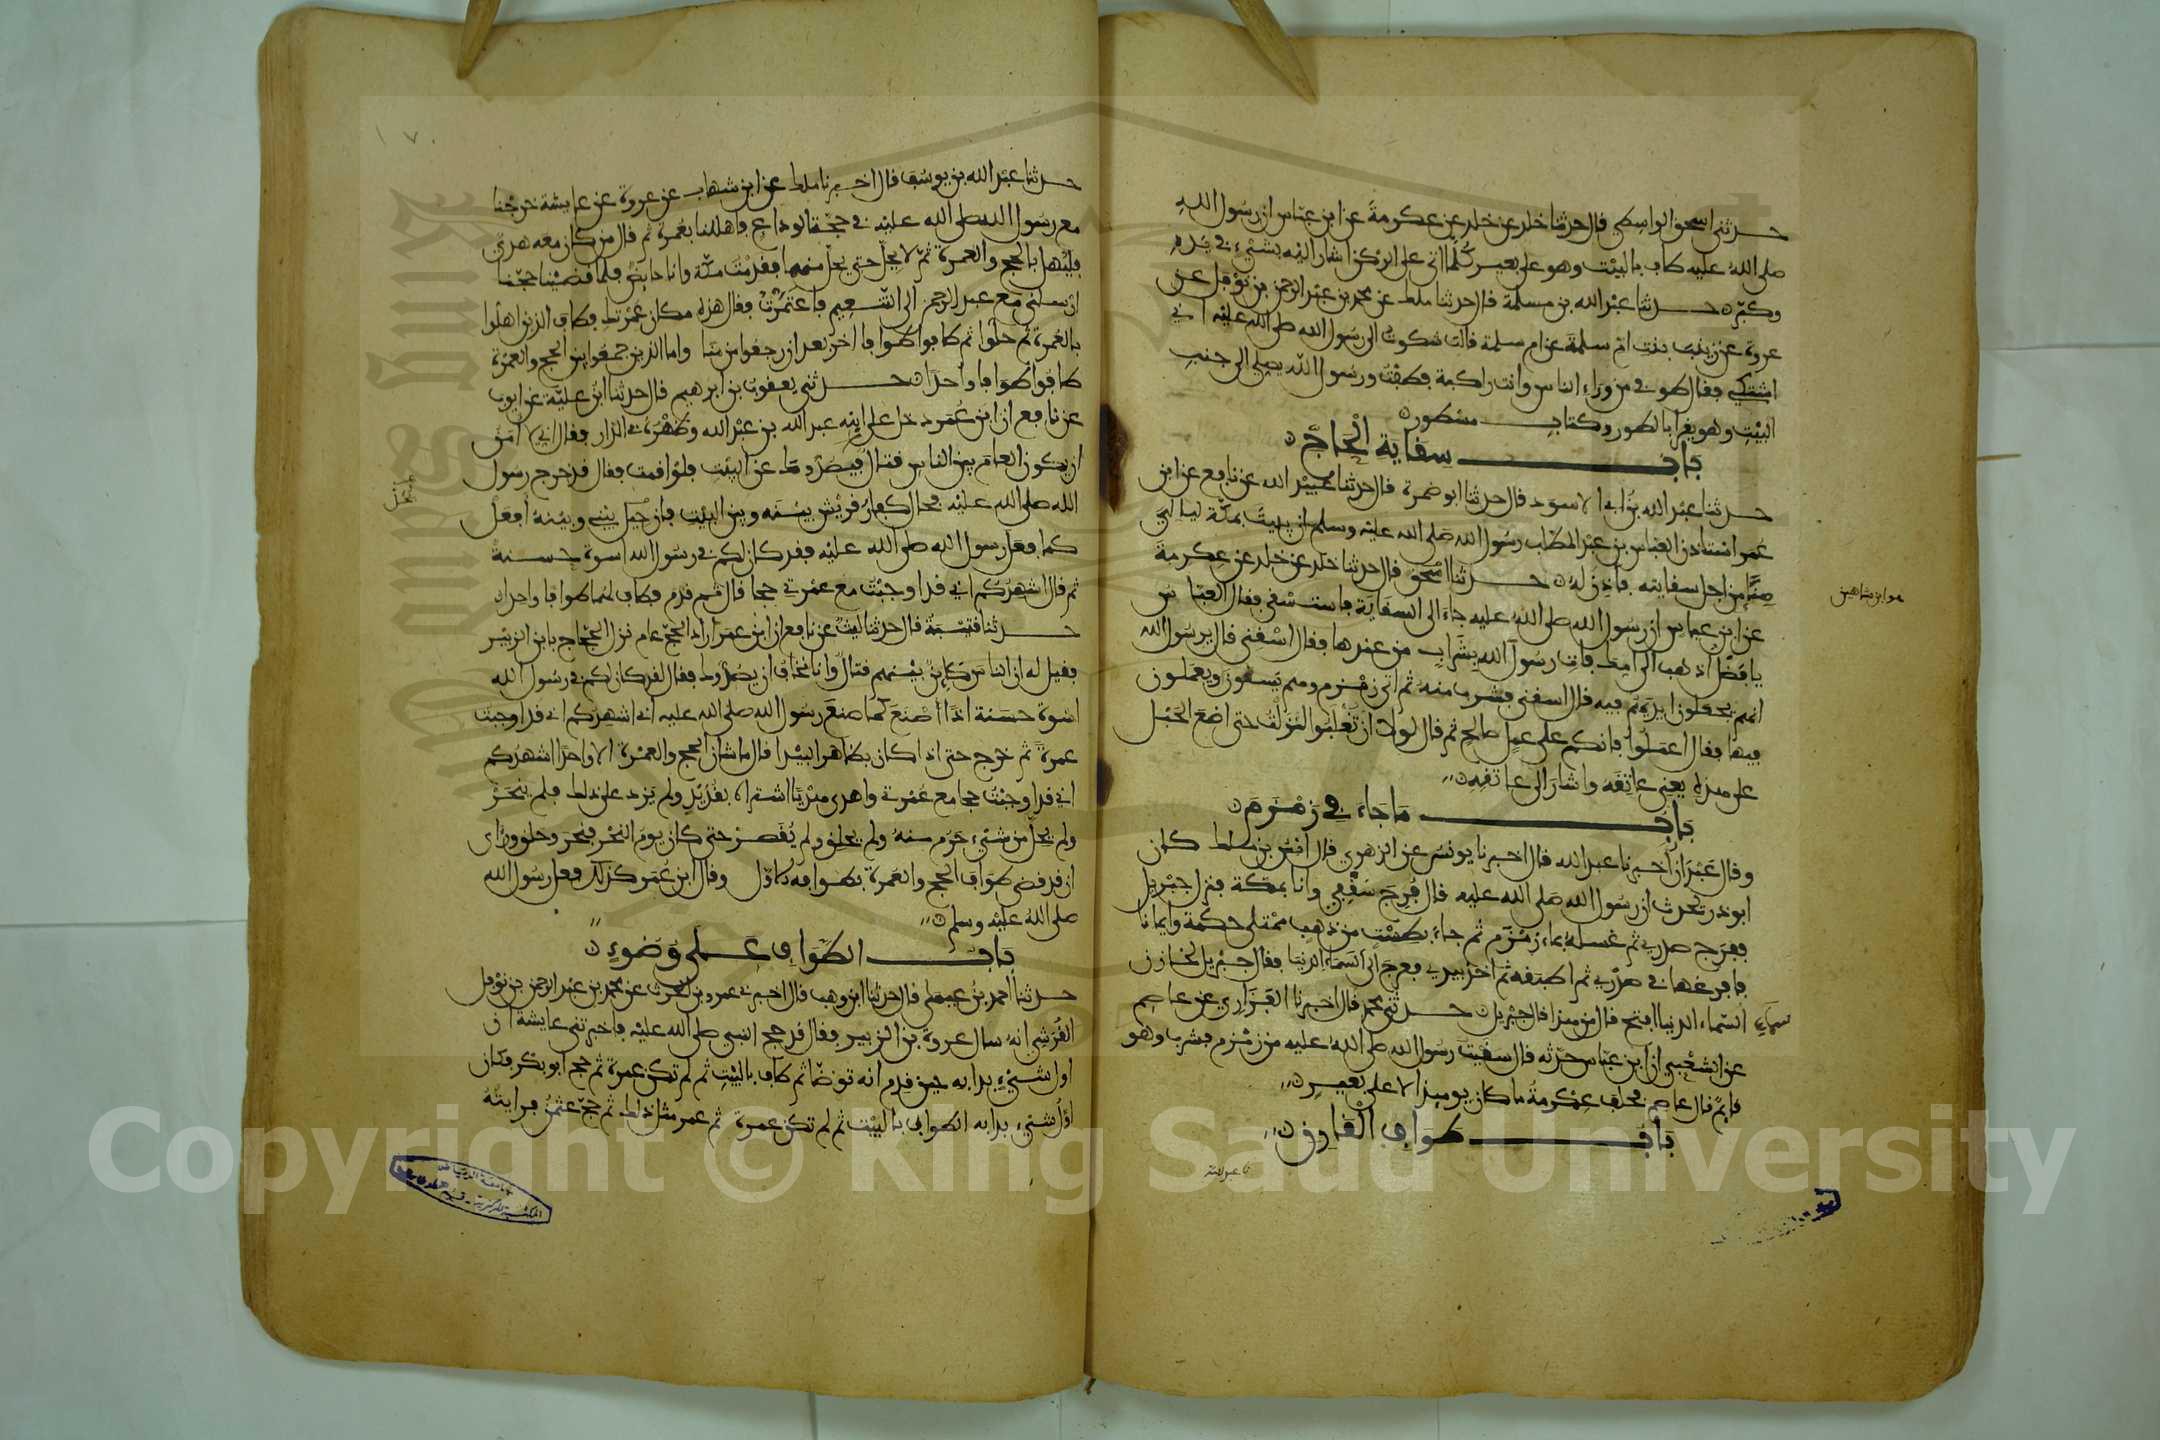 حدثني اسحق الواسطي قال حدثنا خلد عن خلد عن عكرمة عن ابن عباس ان رسول الله
صلى الله عليه طاف بالبيت وهو على بعير كلما اتى على الركن اشار اليه بشيء في يده
وكبر حدثنا عبد الله بن مسلمة قال حدثنا ملك عن محمد بن عبد الرحمن بن نوفل عن
عروة عن زينب بنت ام سلمة عن ام سلمة قالت شكوت الى رسول الله صلى الله عليه اني
اشتكي فقال طوفي من وراء الناس وانت راكبة فطفت ورسول الله يصلي الى جنب
البيت وهو يقرا بالطور وكتاب مسطور
باب سقاية الحاج
حدثنا عبد الله بن ابي الاسود قال حدثنا ابو ضمرة قال حدثنا عبيد الله عن نافع عن ابن
عمر استاذن العباس بن عبد المطلب رسول الله صلى الله عليه وسلم ان يبيت بمكة ليالي
منى من اجل سقايته فاذن له حدثنا اسحق قال حدثنا خلد عن خلد عن عكرمة
هو ابن شاهين
عن ابن عباس ان رسول الله صلى الله عليه جاء الى السقاية فاستسقى فقال العباس
يا فضل اذهب الى امك فات رسول الله بشراب من عندها فقال اسقني قال يرسول الله
انهم يجعلون ايديهم فيه قال اسقني فشرب منه ثم اتى زمزم وهم يسقون ويعملون
فيها فقال اعملوا فانكم على عمل صالح ثم قال لولا ان تغلبوا لنزلت حتى اضع الحبل
على هذه يعني عاتقه واشار الى عاتقه
باب ما جاء في زمزم
وقال عبدان اخبرنا عبد الله قال اخبرنا يونس عن الزهري قال انس بن ملك كان
ابو ذر يحدث ان رسول الله صلى الله عليه قال فرج سقفي وانا بمكة فنزل جبريل
ففرج صدري ثم غسله بماء زمزم ثم جاء بطست من ذهب ممتلي حكمة وايمانا
فافرغها في صدري ثم اطبقه ثم اخذ بيدي فعرج الى السماء الدنيا فقال جبريل لخازن
السماء الدنيا افتح قال من هذا قال جبريل حدثني محمد قال اخبرنا الفزاري عن عاصم
سماء
عن الشعبي ان ابن عباس حدثه قال سقيت رسول الله صلى الله عليه من زمزم فشرب وهو
قايم قال عاصم فحلف عكرمة ما كان يوميذ الا على بعير
باب طواف القارن
نا عبد الله
١٧
حدثنا عبد الله بن يوسف قال اخبرنا ملك عن ابن شهاب عن عروة عن عايشة خرجنا
مع رسول الله صلى الله عليه في حجة الوداع فاهللنا بعمرة ثم قال من كان معه هدي
فليهل بالحج والعمرة ثم لا يحل حتى يحل منهما فقدمت مكة وانا حايض فلما قضينا حجنا
ارسلني مع عبد الرحمن الى التنعيم فاعتمرت فقال هذه مكان عمرتك فطاف الذين اهلوا
بالعمرة ثم حلوا ثم طافوا طوافا اخر بعد ان رجعوا من منا واما الذين جمعوا بين الحج والعمرة
طافوا طوافا واحدا حدثني يعقوب بن ابرهيم قال حدثنا ابن علية عن ايوب
عن نافع ان ابن عمر دخل على ابنه عبد الله بن عبد الله وظهره في الدار فقال اني لا امن
ان يكون العام بين الناس قتال فيصدوك عن البيت فلو اقمت فقال قد خرج رسول
الله صلى الله عليه فحال كفار قريش بينه وبين البيت فان حيل بيني وبينه افعل
كما فعل رسول الله صلى الله عليه فقد كان لكم في رسول الله اسوة حسنة
ثم قال اشهدكم اني قد اوجبت مع عمرتي حجا قال ثم قدم فطاف لهما طوافا واحدا
حدثنا قتيبة قال حدثنا ليث عن نافع ان ابن عمر اراد الحج عام نزل الحجاج بابن الزبير
فقيل له ان الناس كاين بينهم قتال وانا نخاف ان يصدوك فقال لقد كان لكم في رسول الله
اسوة حسنة اذا اصنع كما صنع رسول الله صلى الله عليه اني اشهدكم اني قد اوجبت
عمرة ثم خرج حتى اذا كان بظاهر البيدا قال ما شان الحج والعمرة الا واحدا اشهدكم
اني قد اوجبت حجا مع عمرتي واهدى هديا اشتراه بقديد ولم يزد على ذلك فلم ينحر
ولم يحل من شيء حرم منه ولم يحلق ولم يقصر حتى كان يوم النحر فنحر وحلق وراى
ان قد قضى طواف الحج والعمرة بطوافه الاول وقال ابن عمر كذلك فعل رسول الله
صلى الله عليه وسلم
باب الطواف على وضوء
حدثنا احمد بن عيسى قال حدثنا ابن وهب قال اخبرني عمرو بن الحرث عن محمد بن عبد الرحمن بن نوفل
القرشي انه سال عروة بن الزبير فقال قد حج النبي صلى الله عليه فاخبرتني عايشة ان
اول شيء بدا به حين قدم انه توضا ثم طاف بالبيت ثم لم تكن عمرة ثم حج ابو بكر فكان
اول شيء بدا به الطواف بالبيت ثم لم تكن عمرة ثم عمر مثل ذلك ثم حج عثمن فرايته
جامعة الرياض
Copyright © King Saud University
King Saud University